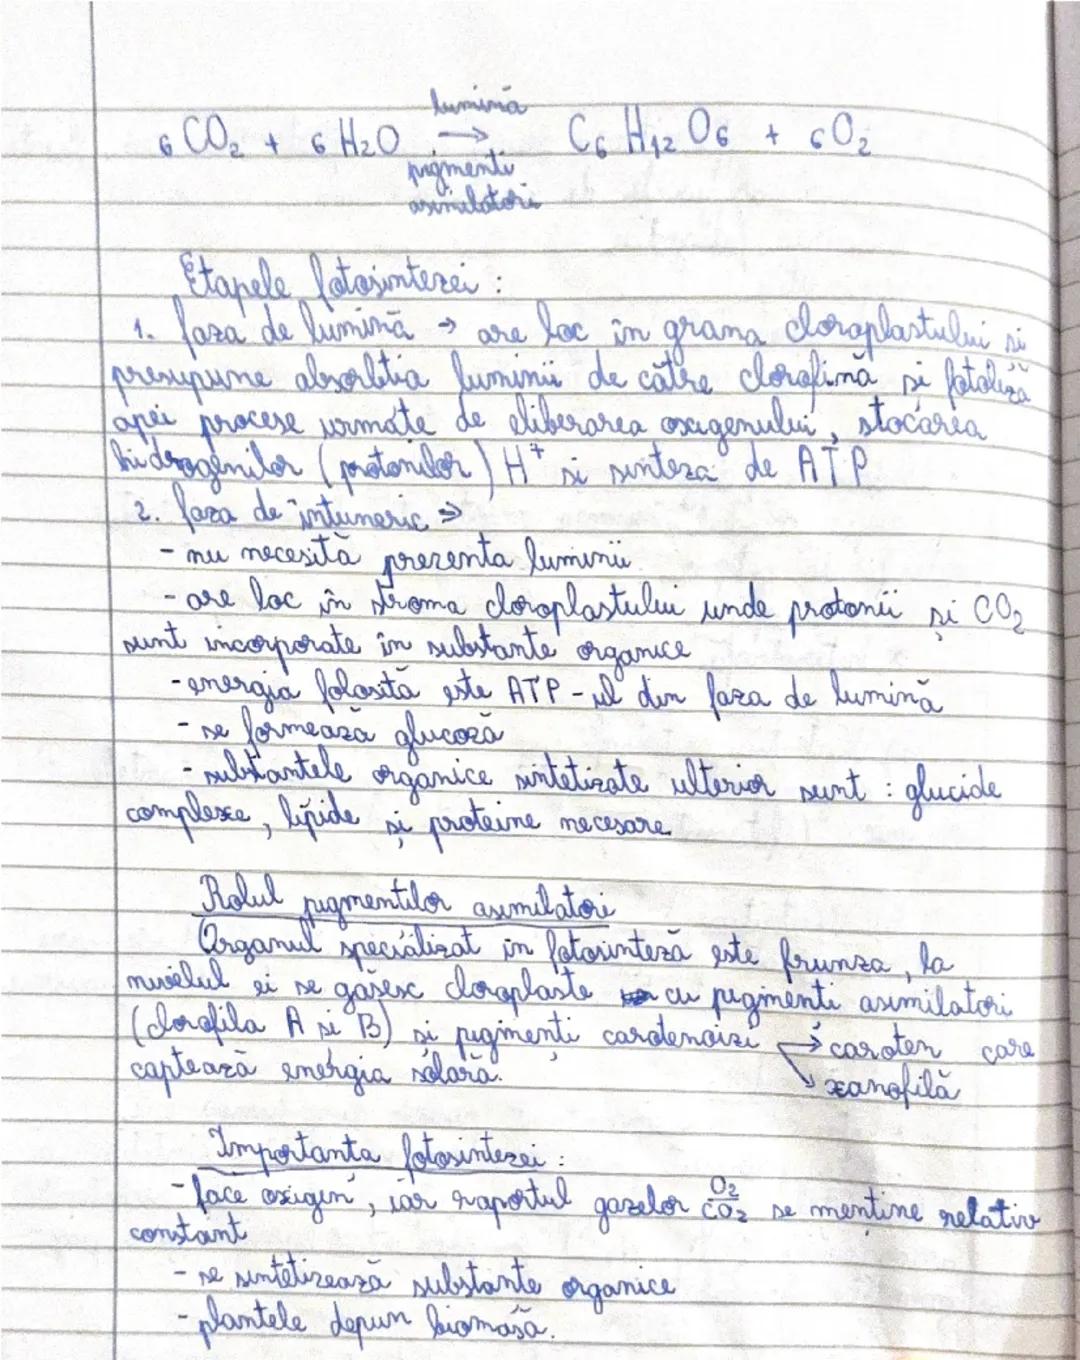 lumină
6 CO₂ + 6 H₂O → C₆ H₁₂ O₆ + 6 O₂
pigmenti
asimilatori
Etapele fotosintezei :
1. faza de lumină → are loc în grana cloroplastului si
presupune absorbtia luminii de către clorofimă și fotoliza
apei procese urmate de eliberarea oxigenului, stocarea
hidrogenilor (protonilor) H⁺ si sinteza de ATP
2. faza de întuneric ⇒
- nu necesită prezenta luminii
- are loc în stroma cloroplastului unde protonii și CO₂
sunt incorporate în substante organice
- energia folosită este ATP-ul din faza de lumină
- se formează glucoză
- substantele organice sintetizate ulterior sunt : glucide
complexe, lipide și proteine necesare
Rolul pigmentilor asimilatori
Organul specializat in fotosinteză este frunza, la
nivelul ei se găsesc cloroplaste cu pigmenti asimilatori
(clorofila A si B) și pigmenti carotenoizi → caroten care
captează energia solară. ↘ xanofilă
Importanta fotosintezei :
- face oxigen, iar raportul gazelor O₂/CO₂ se mentine relativ
constant
- se sintetizează substante organice
- plantele depun biomasă.